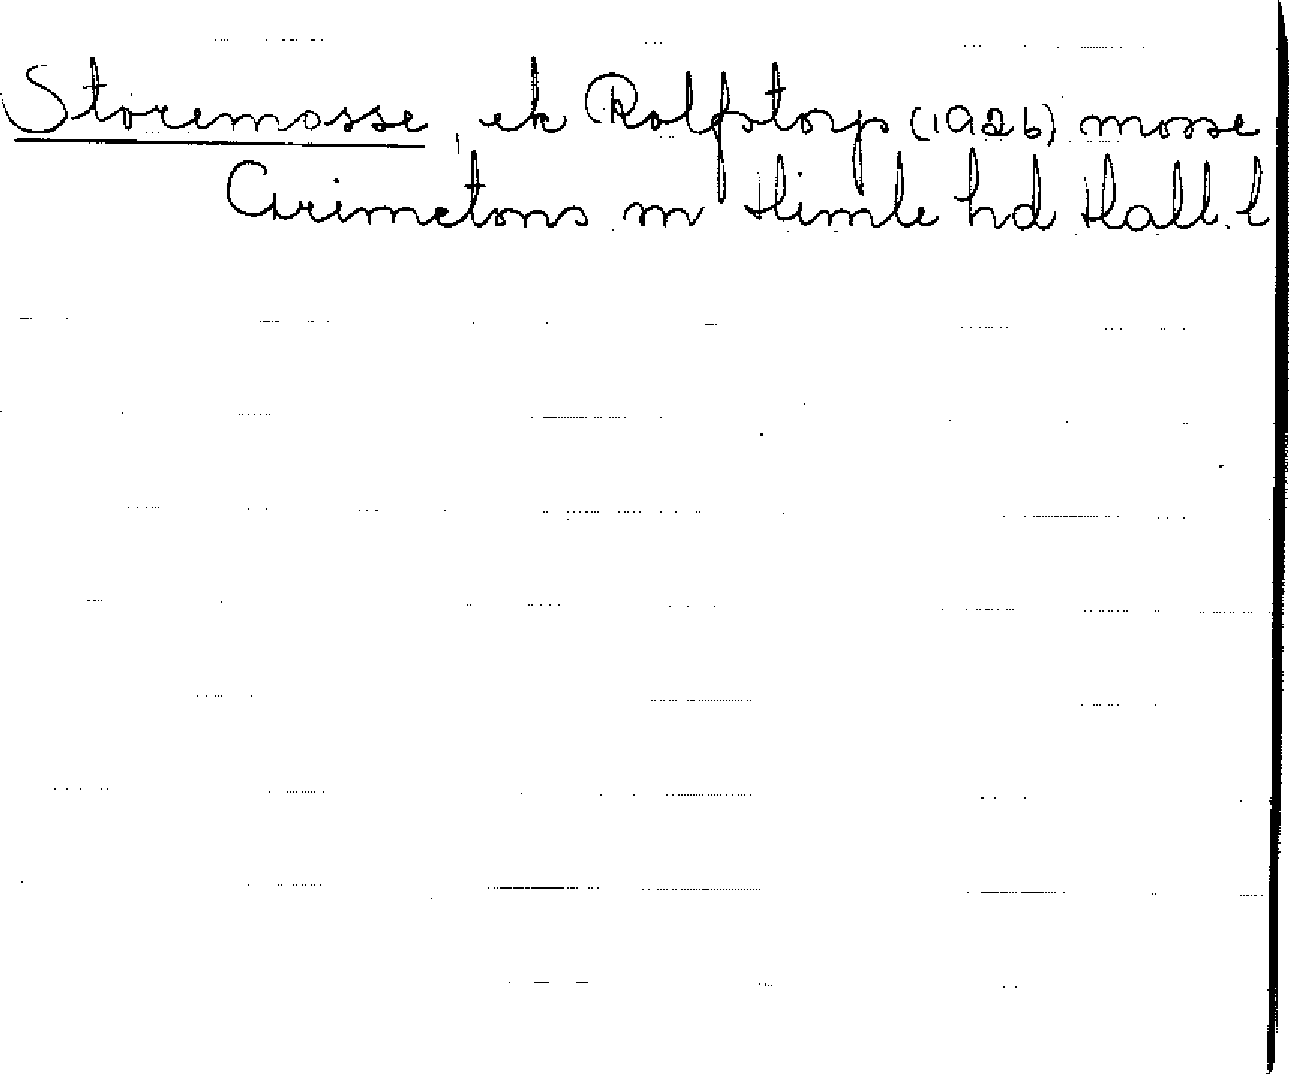 Storemosse, ek Rolfstorps (1926) mosse
Grimetons sn Himle hd Hall. l